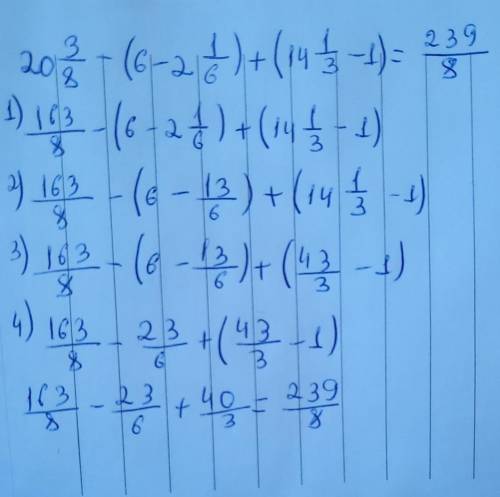 20 3/8 - (6 - 2 1/6) + (14 1/3 - 1) = 239/8
1) 163/8 - (6 - 2 1/6) + (14 1/3 - 1)
2) 163/8 - (6 - 13/6) + (14 1/3 - 1)
3) 163/8 - (6 - 13/6) + (43/3 - 1)
4) 163/8 - 23/6 + (43/3 - 1)
163/8 - 23/6 + 40/3 = 239/8